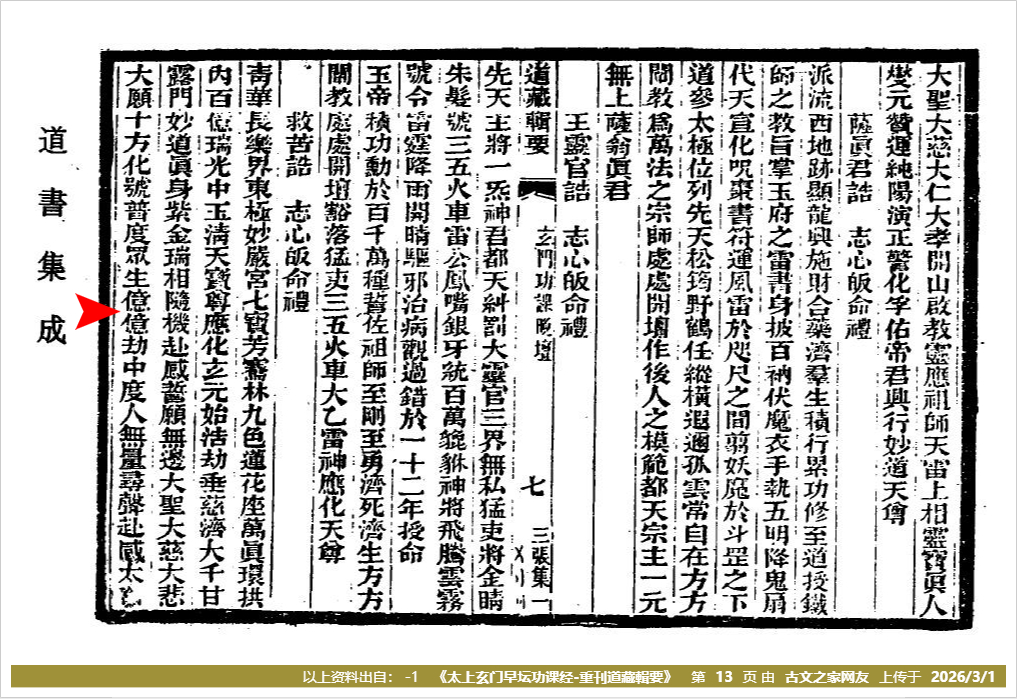 大聖大慈大仁大孝開山啟教靈應祖師天雷上相靈寶眞人
燮元贊運純陽演正警化孚佑帝君興行妙道天尊
薩眞君誥 志心皈命禮
派流西地跡顯龍興施財合藥濟羣生積行累功修至道授鐵
師之教旨掌玉府之雷書身披百衲伏魔衣手執五明降鬼扇
代天宣化咒棗書符運風雷於咫尺之間剪妖魔於斗罡之下
道參太極位列先天松筠野鶴任縱橫遐邇孤雲常自在方方
闡教爲萬法之宗師處處開壇作後人之模範都天宗主一元
無上薩翁眞君
王靈官誥 志心皈命禮
道藏輯要 玄門功課晚壇 七 三張集一
先天主將一炁神君都天糾罰大靈官三界無私猛吏將金睛
朱髮號三五火車雷公鳳嘴銀牙統百萬貔貅神將飛騰雲霧
號令雷霆降雨開晴驅邪治病觀過錯於一十二年授命
玉帝積功勳於百千萬種誓佐祖師至剛至勇濟死濟生方方
闡教處處開壇豁落猛吏三五火車大乙雷神應化天尊
救苦誥 志心皈命禮
青華長樂界東極妙嚴宮七寶芳騫林九色蓮花座萬眞環拱
內百億瑞光中玉清天寶尊應化玄元始浩劫垂慈濟大千甘
露門妙道眞身紫金瑞相隨機赴感誓願無邊大聖大慈大悲
大願十方化號普度眾生億億劫中度人無量尋聲赴感太
道書集成
以上资料出自： -1 《太上玄门早坛功课经-重刊道藏輯要》 第 13 页 由 古文之家网友 上传于 2026/3/1